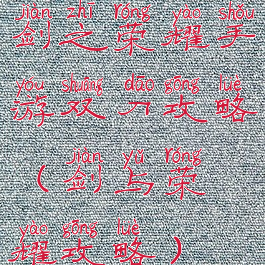 jiàn zhī róng yào shǒu
剑之荣耀手
yóu shuāng dāo gōng lüè
游双刀攻略
jiàn yǔ róng
(剑与荣
yào gōng lüè
耀攻略)